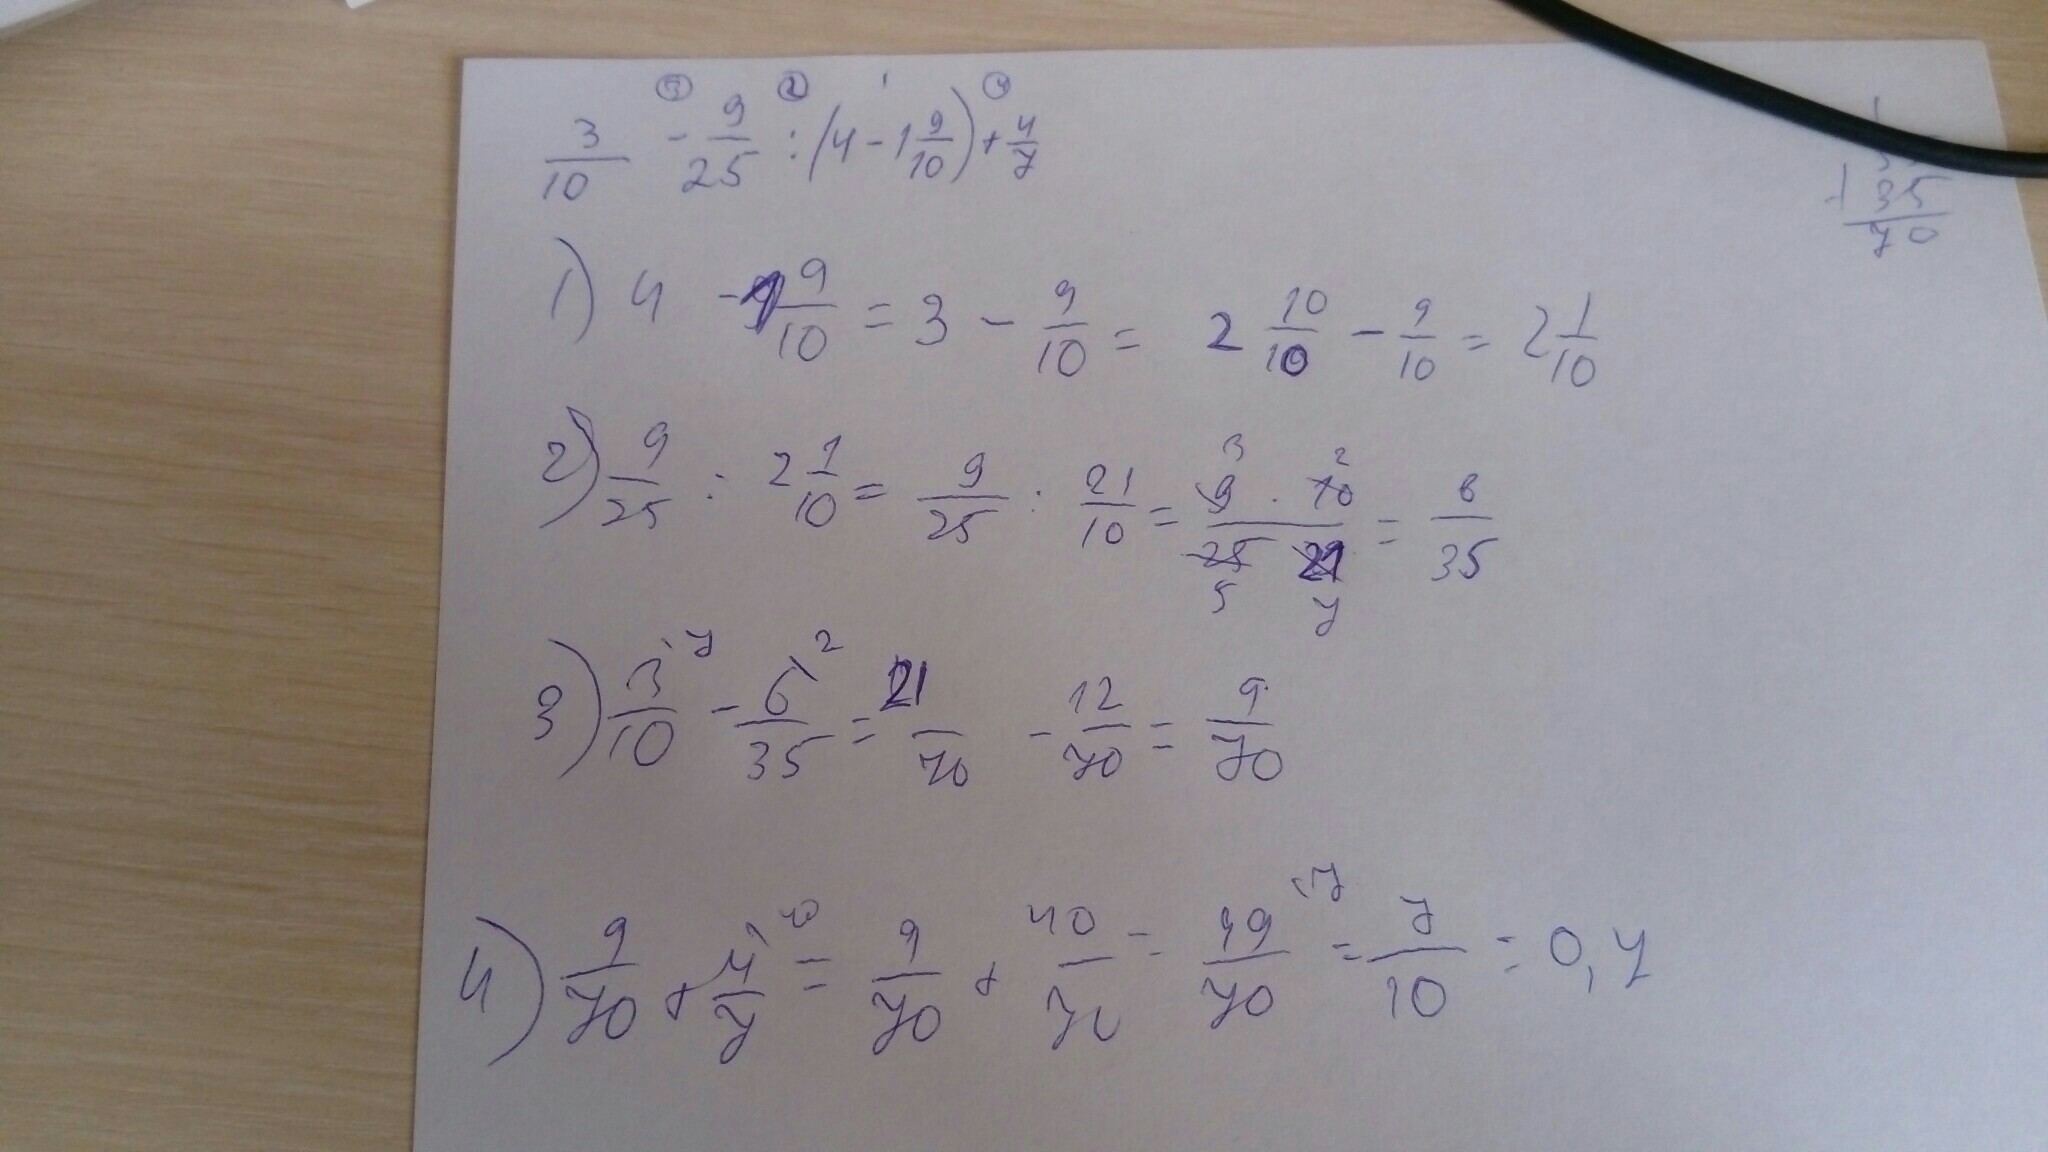 ③ ② 1 ④
3/10 - 9/25 : (4 - 1 9/10) + 4/7
1) 4 - 1 9/10 = 3 - 9/10 = 2 10/10 - 9/10 = 2 1/10
2) 9/25 : 2 1/10 = 9/25 : 21/10 = 9 3 · 10 2 / 25 5 21 7 = 6/35
3) 3/10 7 - 6/35 2 = 21/70 - 12/70 = 9/70
4) 9/70 + 4/7 10 = 9/70 + 40/70 = 49/70 :7 = 7/10 = 0,7
1
+ 35
70